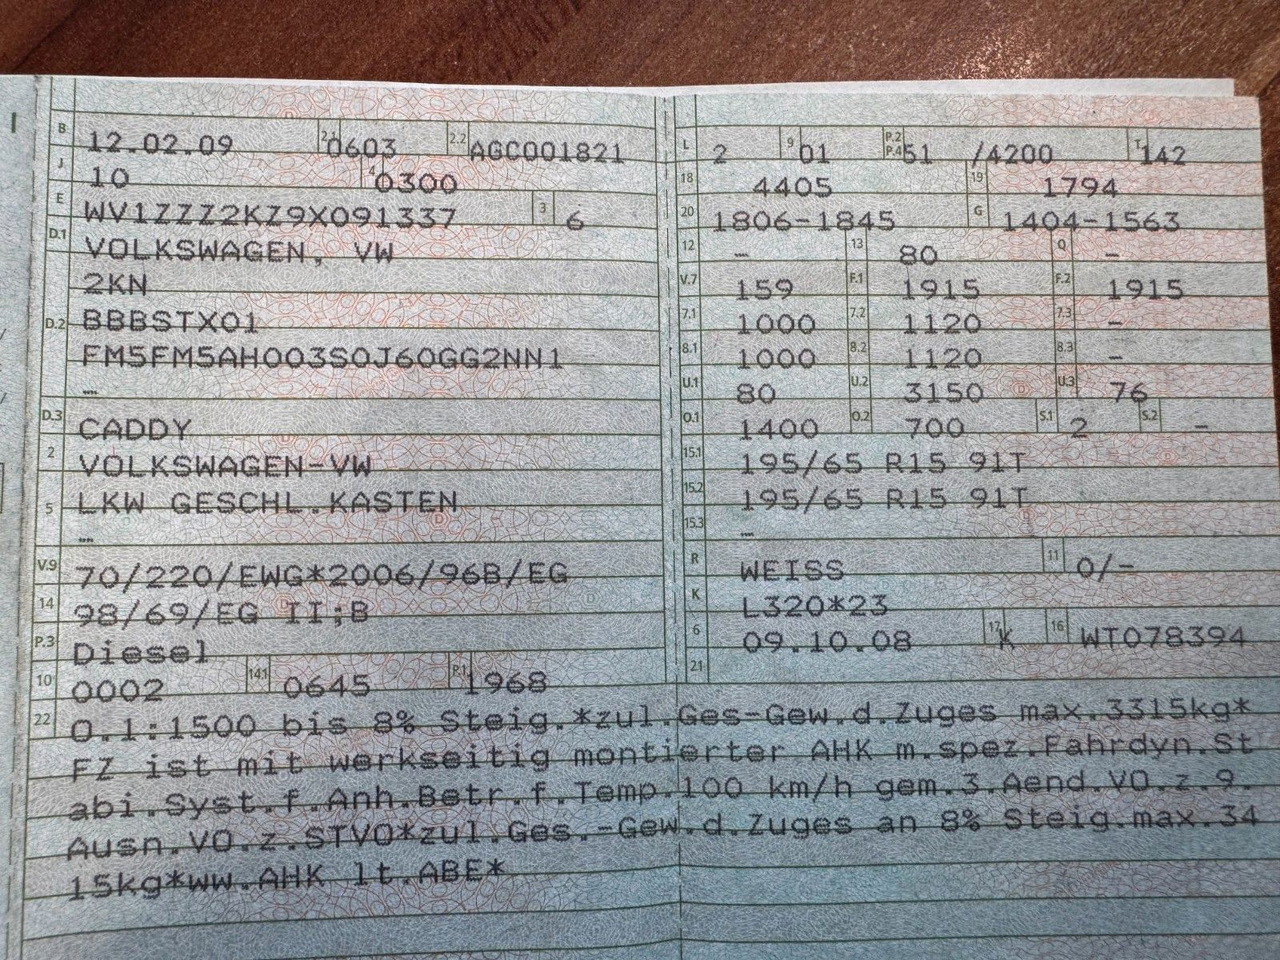 B 12.02.09 2.1 0603 2.2 AGC001821
J 10 4 0300
E WV1ZZZ2KZ9X091337 3 6
D.1 VOLKSWAGEN, VW
2KN
D.2 BBBSTX01
FM5FM5AH003S0J60GG2NN1
—
D.3 CADDY
2 VOLKSWAGEN-VW
5 LKW GESCHL.KASTEN
—
V.9 70/220/EWG*2006/96B/EG
14 98/69/EG II;B
P.3 Diesel
10 0002 14.1 0645 P.1 1968
L 2 9 01 P.2 P.4 51 /4200 T 142
18 4405 19 1794
20 1806-1845 G 1404-1563
12 — 13 80 Q —
V.7 159 F.1 1915 F.2 1915
7.1 1000 7.2 1120 7.3 —
8.1 1000 8.2 1120 8.3 —
U.1 80 U.2 3150 U.3 76
O.1 1400 O.2 700 S.1 2 S.2 —
15.1 195/65 R15 91T
15.2 195/65 R15 91T
15.3 —
R WEISS 11 0/-
K L320*23
6 09.10.08 17 K 16 WT078394
21
22 O.1:1500 bis 8% Steig.*zul.Ges-Gew.d.Zuges max.3315kg*
FZ ist mit werkseitig montierter AHK m.spez.Fahrdyn.St
abi.Syst.f.Anh.Betr.f.Temp.100 km/h gem.3.Aend.VO.z.9.
Ausn.VO.z.STVO*zul.Ges.-Gew.d.Zuges an 8% Steig.max.34
15kg*ww.AHK lt.ABE*